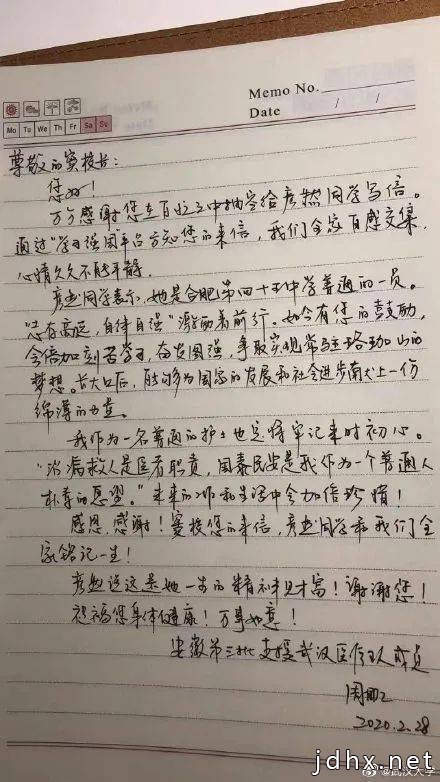 Memo No.
Date / /
Mo Tu We Th Fr Sa Su
尊敬的窦校长：
您好！
万分感谢您在百忙之中抽空给彦然同学写信。
通过“学习强国”平台方知您的来信，我们全家百感交集，
心情久久不能平静。
彦然同学表示，她是合肥第四十五中学普通的一员。
“志存高远，自律自强”激励着前行。如今有您的鼓励，
会倍加刻苦学习，奋发图强，争取实现常驻珞珈山的
梦想。长大以后，能够为国家的发展和社会进步献上一份
绵薄的力量。
我作为一名普通的护士也定将牢记来时初心。
“治病救人是医者职责，国泰民安是我作为一个普通人
朴素的愿望。”未来的工作和生活中会加倍珍惜！
感恩，感谢！窦校您的来信，彦然同学和我们全
家铭记一生！
彦然说这是她一生的精神财富！谢谢您！
祝福您身体健康！万事如意！
安徽第三批支援武汉医疗队成员
周
2020.2.28
@武汉大学
jdhx.net